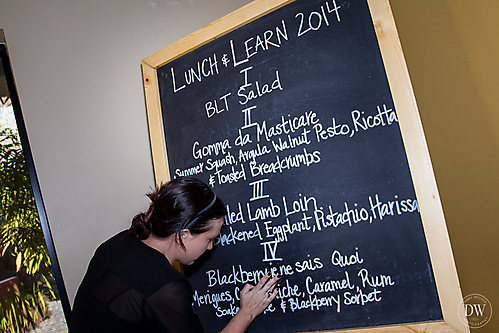 LUNCH & LEARN 2014
I
BLT Salad
II
Gomma da Masticare
Summer Squash, Argula Walnut Pesto, Ricotta
& Toasted Breadcrumbs
III
Lamb Loin
Eggplant, Pistachio, Harissa
IV
Blackberry ne sais Quoi
Merigues, Caramel, Rum
& Blackberry Sorbet
DW